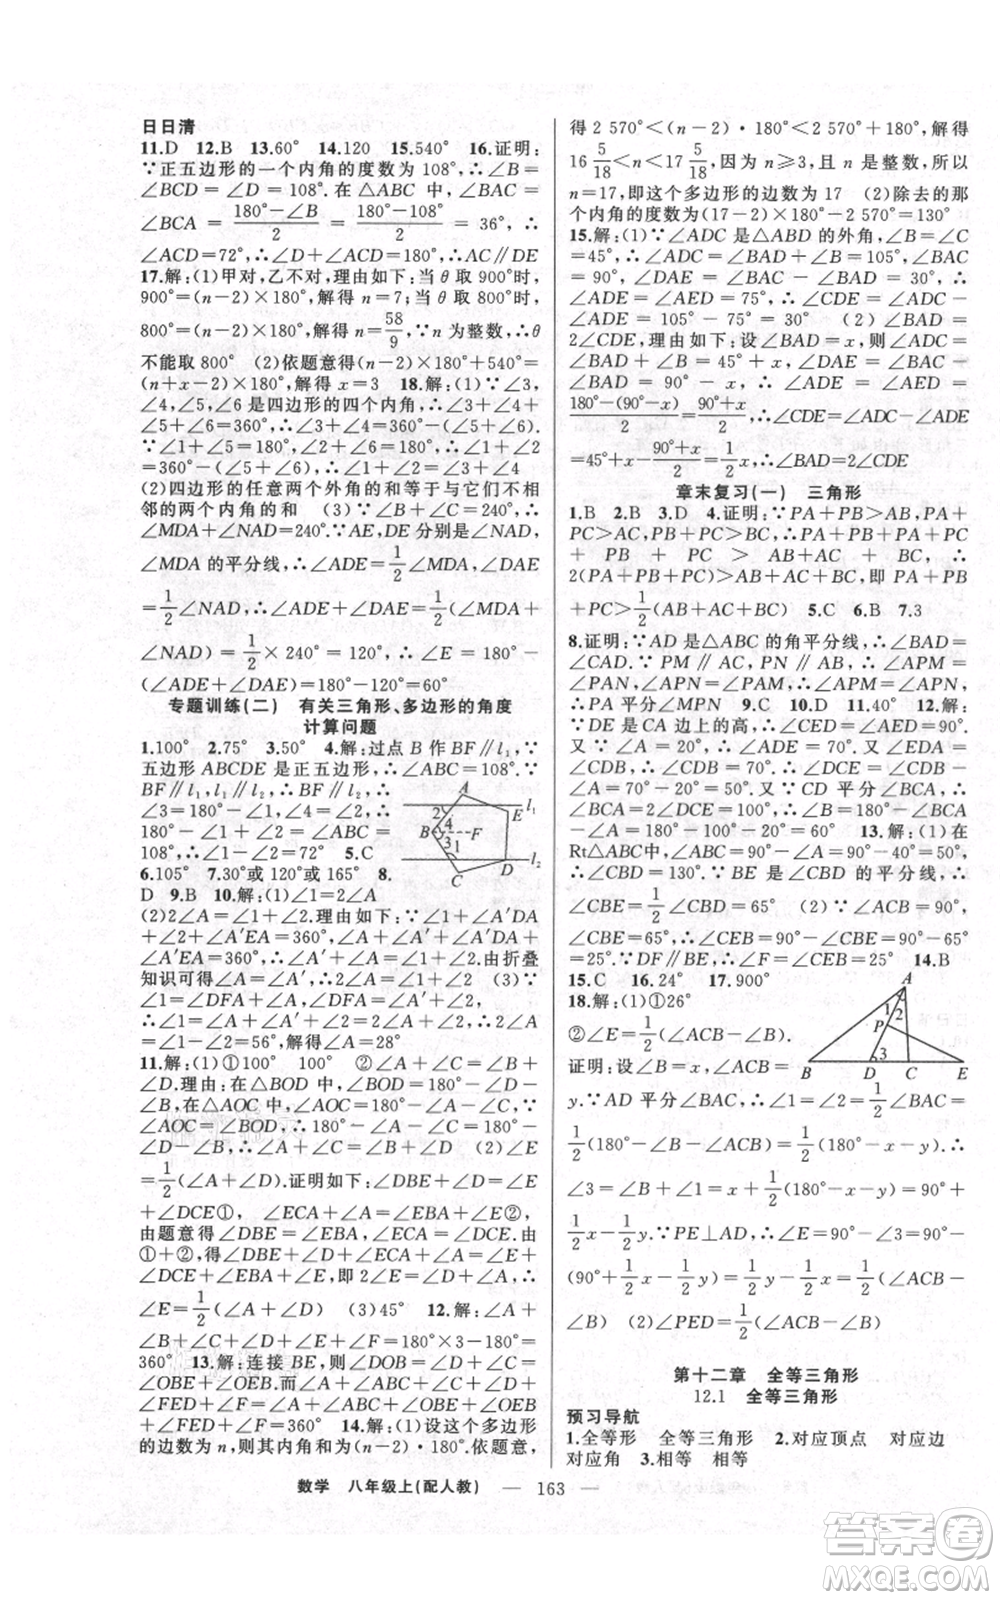 日日清
11.D 12.B 13.60° 14.120 15.540° 16.证明:
∵正五边形的一个内角的度数为 108°,∴∠B=
∠BCD=∠D=108°. 在△ABC 中,∠BAC=
∠BCA=(180°-∠B)/2=(180°-108°)/2=36°,∴
∠ACD=72°,∴∠D+∠ACD=180°,∴AC∥DE
17.解:(1)甲对,乙不对,理由如下:当 θ 取 900°时,
900°=(n-2)×180°,解得 n=7;当 θ 取 800°时,
800°=(n-2)×180°,解得 n=58/9,∵n 为整数,∴θ
不能取 800° (2)依题意得(n-2)×180°+540°=
(n+x-2)×180°,解得 x=3 18.解:(1)∵∠3,
∠4,∠5,∠6 是四边形的四个内角,∴∠3+∠4+
∠5+∠6=360°,∴∠3+∠4=360°-(∠5+∠6).
∵∠1+∠5=180°,∠2+∠6=180°,∴∠1+∠2=
360°-(∠5+∠6),∴∠1+∠2=∠3+∠4
(2)四边形的任意两个外角的和等于与它们不相
邻的两个内角的和 (3)∵∠B+∠C=240°,∴
∠MDA+∠NAD=240°.∵AE,DE 分别是∠NAD,
∠MDA 的平分线,∴∠ADE=1/2∠MDA,∠DAE
=1/2∠NAD,∴∠ADE+∠DAE=1/2(∠MDA+
∠NAD)=1/2×240°=120°,∴∠E=180°-
(∠ADE+∠DAE)=180°-120°=60°
专题训练(二) 有关三角形、多边形的角度
计算问题
1.100° 2.75° 3.50° 4.解:过点 B 作 BF∥l₁,∵
五边形 ABCDE 是正五边形,∴∠ABC=108°.∵
BF∥l₁,l₁∥l₂,∴BF∥l₂,∴
∠3=180°-∠1,∠4=∠2,∴
180°-∠1+∠2=∠ABC=
108°,∴∠1-∠2=72° 5.C
6.105° 7.30°或 120°或 165° 8.
D 9.B 10.解:(1)∠1=2∠A
(2)2∠A=∠1+∠2 理由如下:∵∠1+∠A′DA
+∠2+∠A′EA=360°,∠A+∠A′+∠A′DA+
∠A′EA=360°,∴∠A′+∠A=∠1+∠2,由折叠
知识可得∠A=∠A′,∴2∠A=∠1+∠2 (3)∵
∠1=∠DFA+∠A,∠DFA=∠A′+∠2,∴
∠1=∠A+∠A′+∠2=2∠A+∠2,∴
2∠A=∠1-∠2=56°,解得∠A=28°
11.解:(1)①100° 100° ②∠A+∠C=∠B+
∠D.理由:在△BOD 中,∠BOD=180°-∠B-
∠D,在△AOC 中,∠AOC=180°-∠A-∠C,∵
∠AOC=∠BOD,∴180°-∠A-∠C=180°-
∠B-∠D,∴∠A+∠C=∠B+∠D (2)∠E
=1/2(∠A+∠D).证明如下:∵∠DBE+∠D=∠E
+∠DCE①, ∠ECA+∠A=∠EBA+∠E②,
由题意得∠DBE=∠EBA,∠ECA=∠DCE.由
①+②,得∠DBE+∠D+∠ECA+∠A=∠E+
∠DCE+∠EBA+∠E,即 2∠E=∠A+∠D,∴
∠E=1/2(∠A+∠D) (3)45° 12.解:∠A+
∠B+∠C+∠D+∠E+∠F=180°×3-180°=
360° 13.解:连接 BE,则∠D+∠C=∠CBE+
∠OBE+∠OEB.而∠A+∠ABC+∠CBE+
∠OBE+∠OEB+∠FED+∠F=360°,∴∠A+
∠ABC+∠C+∠D+∠FED+∠F=∠A+∠ABC+∠CBE+∠OBE+∠OEB
+∠FED+∠F=360° 14.解:(1)设这个多边形
的边数为 n,则其内角和为(n-2)·180°.依题意,
得 2 570°<(n-2)·180°<2 570°+180°,解得
16 5/18<n<17 5/18,因为 n≥3,且 n 是整数,所以
n=17,即这个多边形的边数为 17 (2)除去的那
个内角的度数为(17-2)×180°-2 570°=130°
15.解:(1)∵∠ADC 是△ABD 的外角,∠B=∠C
=45°,∴∠ADC=∠B+∠BAD=105°,∠BAC
=90°,∠DAE=∠BAC-∠BAD=30°,∴
∠ADE=∠AED=75°,∴∠CDE=∠ADC-
∠ADE=105°-75°=30° (2)∠BAD=
2∠CDE,理由如下:设∠BAD=x,则∠ADC=
∠B+∠BAD=45°+x,∠DAE=∠BAC-
∠BAD=90°-x,∴∠ADE=∠AED=
(180°-(90°-x))/2=(90°+x)/2,∴∠CDE=∠ADC-∠ADE
=45°+x-(90°+x)/2=1/2x,∴∠BAD=2∠CDE
章末复习(一) 三角形
1.B 2.B 3.D 4.证明:∵PA+PB>AB,PA+
PC>AC,PB+PC>BC,∴PA+PB+PA+PC
+PB+PC>AB+AC+BC,∴
2(PA+PB+PC)>AB+AC+BC,即 PA+PB
+PC>1/2(AB+AC+BC) 5.C 6.B 7.3
8.证明:∵AD 是△ABC 的角平分线,∴∠BAD=
∠CAD.∵PM∥AC,PN∥AB,∴∠APM=
∠CAD,∠APN=∠BAD,∴∠APM=∠APN,
∴PA 平分∠MPN 9.C 10.D 11.40° 12.解:
∵DE 是 CA 边上的高,∴∠CED=∠AED=90°.
∵∠A=20°,∴∠EDA=90°-20°=70°.∵∠EDA=
∠CDB,∴∠CDB=70°,∴∠ACD=∠CDB-
∠A=70°-20°=50°.又∵CD 平分∠BCA,∴
∠BCA=2∠ACD=100°,∴∠B=180°-∠BCA
-∠A=180°-100°-20°=60° 13.解:(1)在
Rt△ABC中,∠ABC=90°-∠A=90°-40°=50°,∴
∠CBD=130°.∵BE 是∠CBD 的平分线,∴
∠CBE=1/2∠CBD=65° (2)∵∠ACB=90°,
∠CBE=65°,∴∠CEB=90°-∠CBE=90°-65°
=25°.∵DF∥BE,∴∠F=∠CEB=25° 14.B
15.C 16.24° 17.900°
18.解:(1)①26°
②∠E=1/2(∠ACB-∠B).
证明:设∠B=x,∠ACB=
y.∵AD 平分∠BAC,∴∠1=∠2=1/2∠BAC=
1/2(180°-∠B-∠ACB)=1/2(180°-x-y).∴
∠3=∠B+∠1=x+1/2(180°-x-y)=90°+
1/2x-1/2y.∵PE⊥AD,∴∠E=90°-∠3=90°-
(90°+1/2x-1/2y)=1/2(y-x)=1/2(∠ACB-
∠B) (2)∠PED=1/2(∠ACB-∠B)
第十二章 全等三角形
12.1 全等三角形
预习导航
1.全等形 全等三角形 2.对应顶点 对应边
对应角 3.相等 相等
数学 八年级上(配人教) — 163 —
答案圈
MXQE.COM